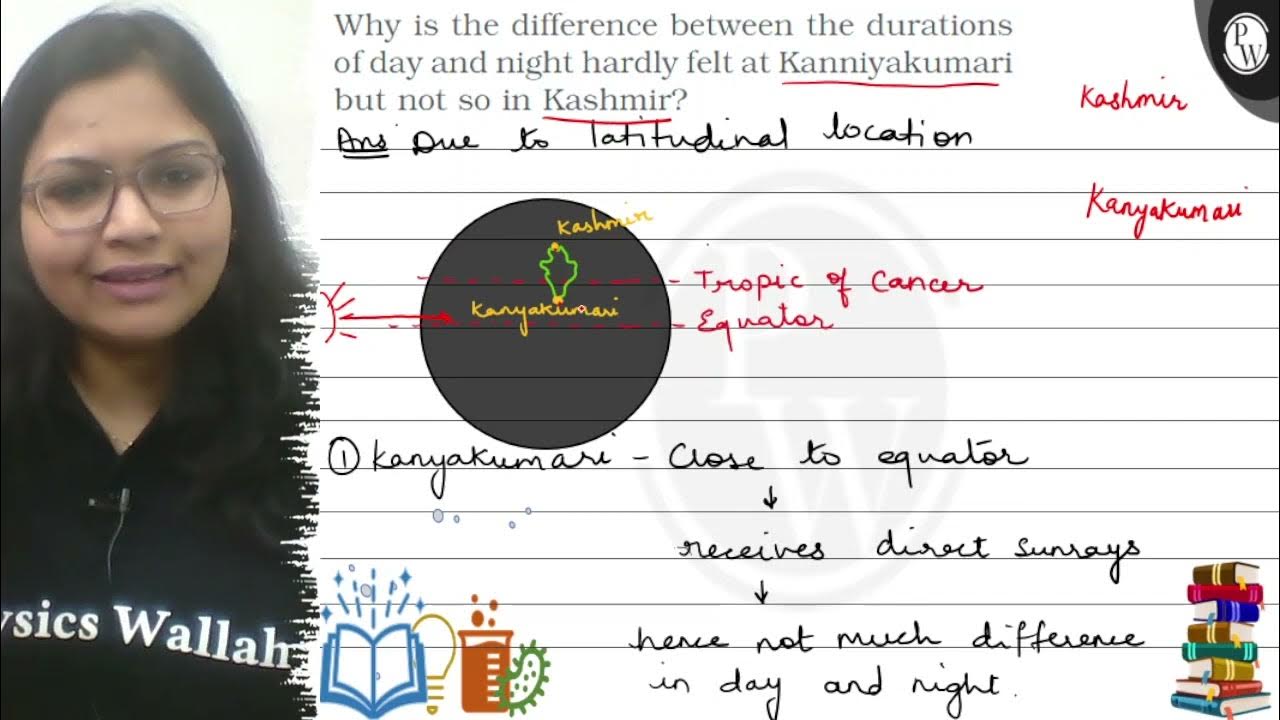 Why is the difference between the durations
of day and night hardly felt at Kanniyakumari
but not so in Kashmir?
Ans Due to latitudinal location
PW
Kashmir
Kanyakumari
Kashmir
Kanyakumari
Tropic of Cancer
Equator
PW
① Kanyakumari - Close to equator
↓
receives direct sunrays
↓
hence not much difference
in day and night.
ysics Wallah